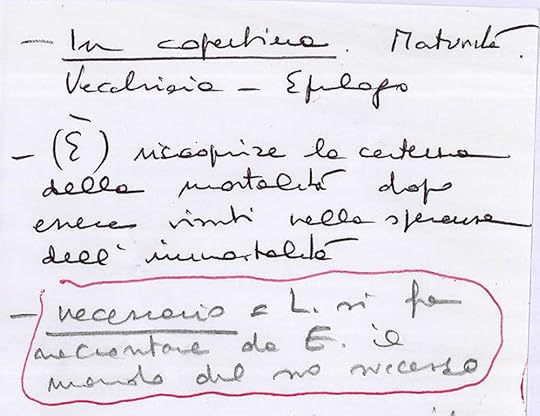 - In copertina. Maturità.
Vecchiaia - Epilogo
- (È) riscoprire la certezza
della mortalità dopo
essere vissuti nella speranza
dell'immortalità
- necessario a L. si fa
raccontare da E. il
mondo del suo successo